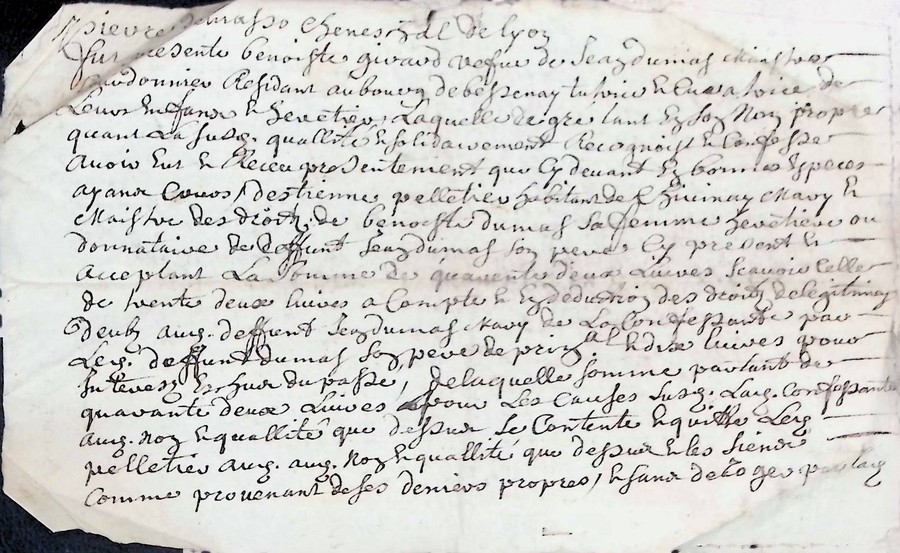 pierre dumasso Seneschal de lyon
Fut presente benoiste girard vefue de Jean dumas Maistre
Cordonnier Residant au bourg de bessenay tutrice et Curatrice de
Leurs Enfans et heretiers, Laquelle de gre tant En son Nom propre
quant La susd. quallité et solidairement Recognoist et Confesse
Avoir Eut et Receu presentement que Cy devant En bonnes Especes
ayant Cours, d'estienne pelletier habitant de Chivinay Mary et
Maistre des droitz de benoiste dumas sa femme heretiere ou
donnataire de deffunt Jean dumas son pere Cy present et
Acceptant La somme de quarente deux Livres scavoir Celle
de trente deux livres a Compte et En deduction des droitz de legitime
deubz aud. deffunt Jean dumas Mary de La Confessante par
Led. deffunt dumas son pere de prinal et dix livres pour
Interestz Escheux du passé, de laquelle somme partant de
quarante deux Livres pour Les Causes susd. Lad. Confessante
aud. Nom et quallité que dessus se Contente et quitte Led.
pelletier aud. Nom et quallité que dessus et les siens
Comme provenant de ses deniers propres, et sans deroger par lad